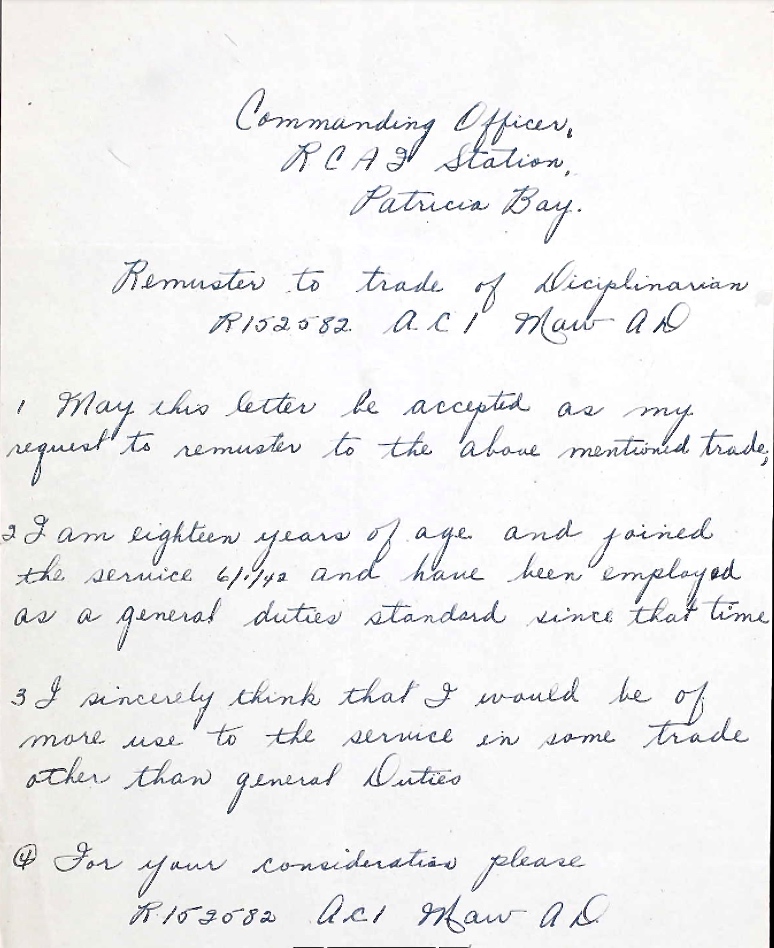 Commanding Officer,
R C A F Station,
Patricia Bay.
Remuster to trade of Diciplinarian
R152582 A.C 1 Maw A D
1 May this letter be accepted as my
request to remuster to the above mentioned trade,
2 I am eighteen years of age and joined
the service 6/1/42 and have been employed
as a general duties standard since that time
3 I sincerely think that I would be of
more use to the service in some trade
other than general Duties
④ For your consideration please
R152582 AC1 Maw A D.